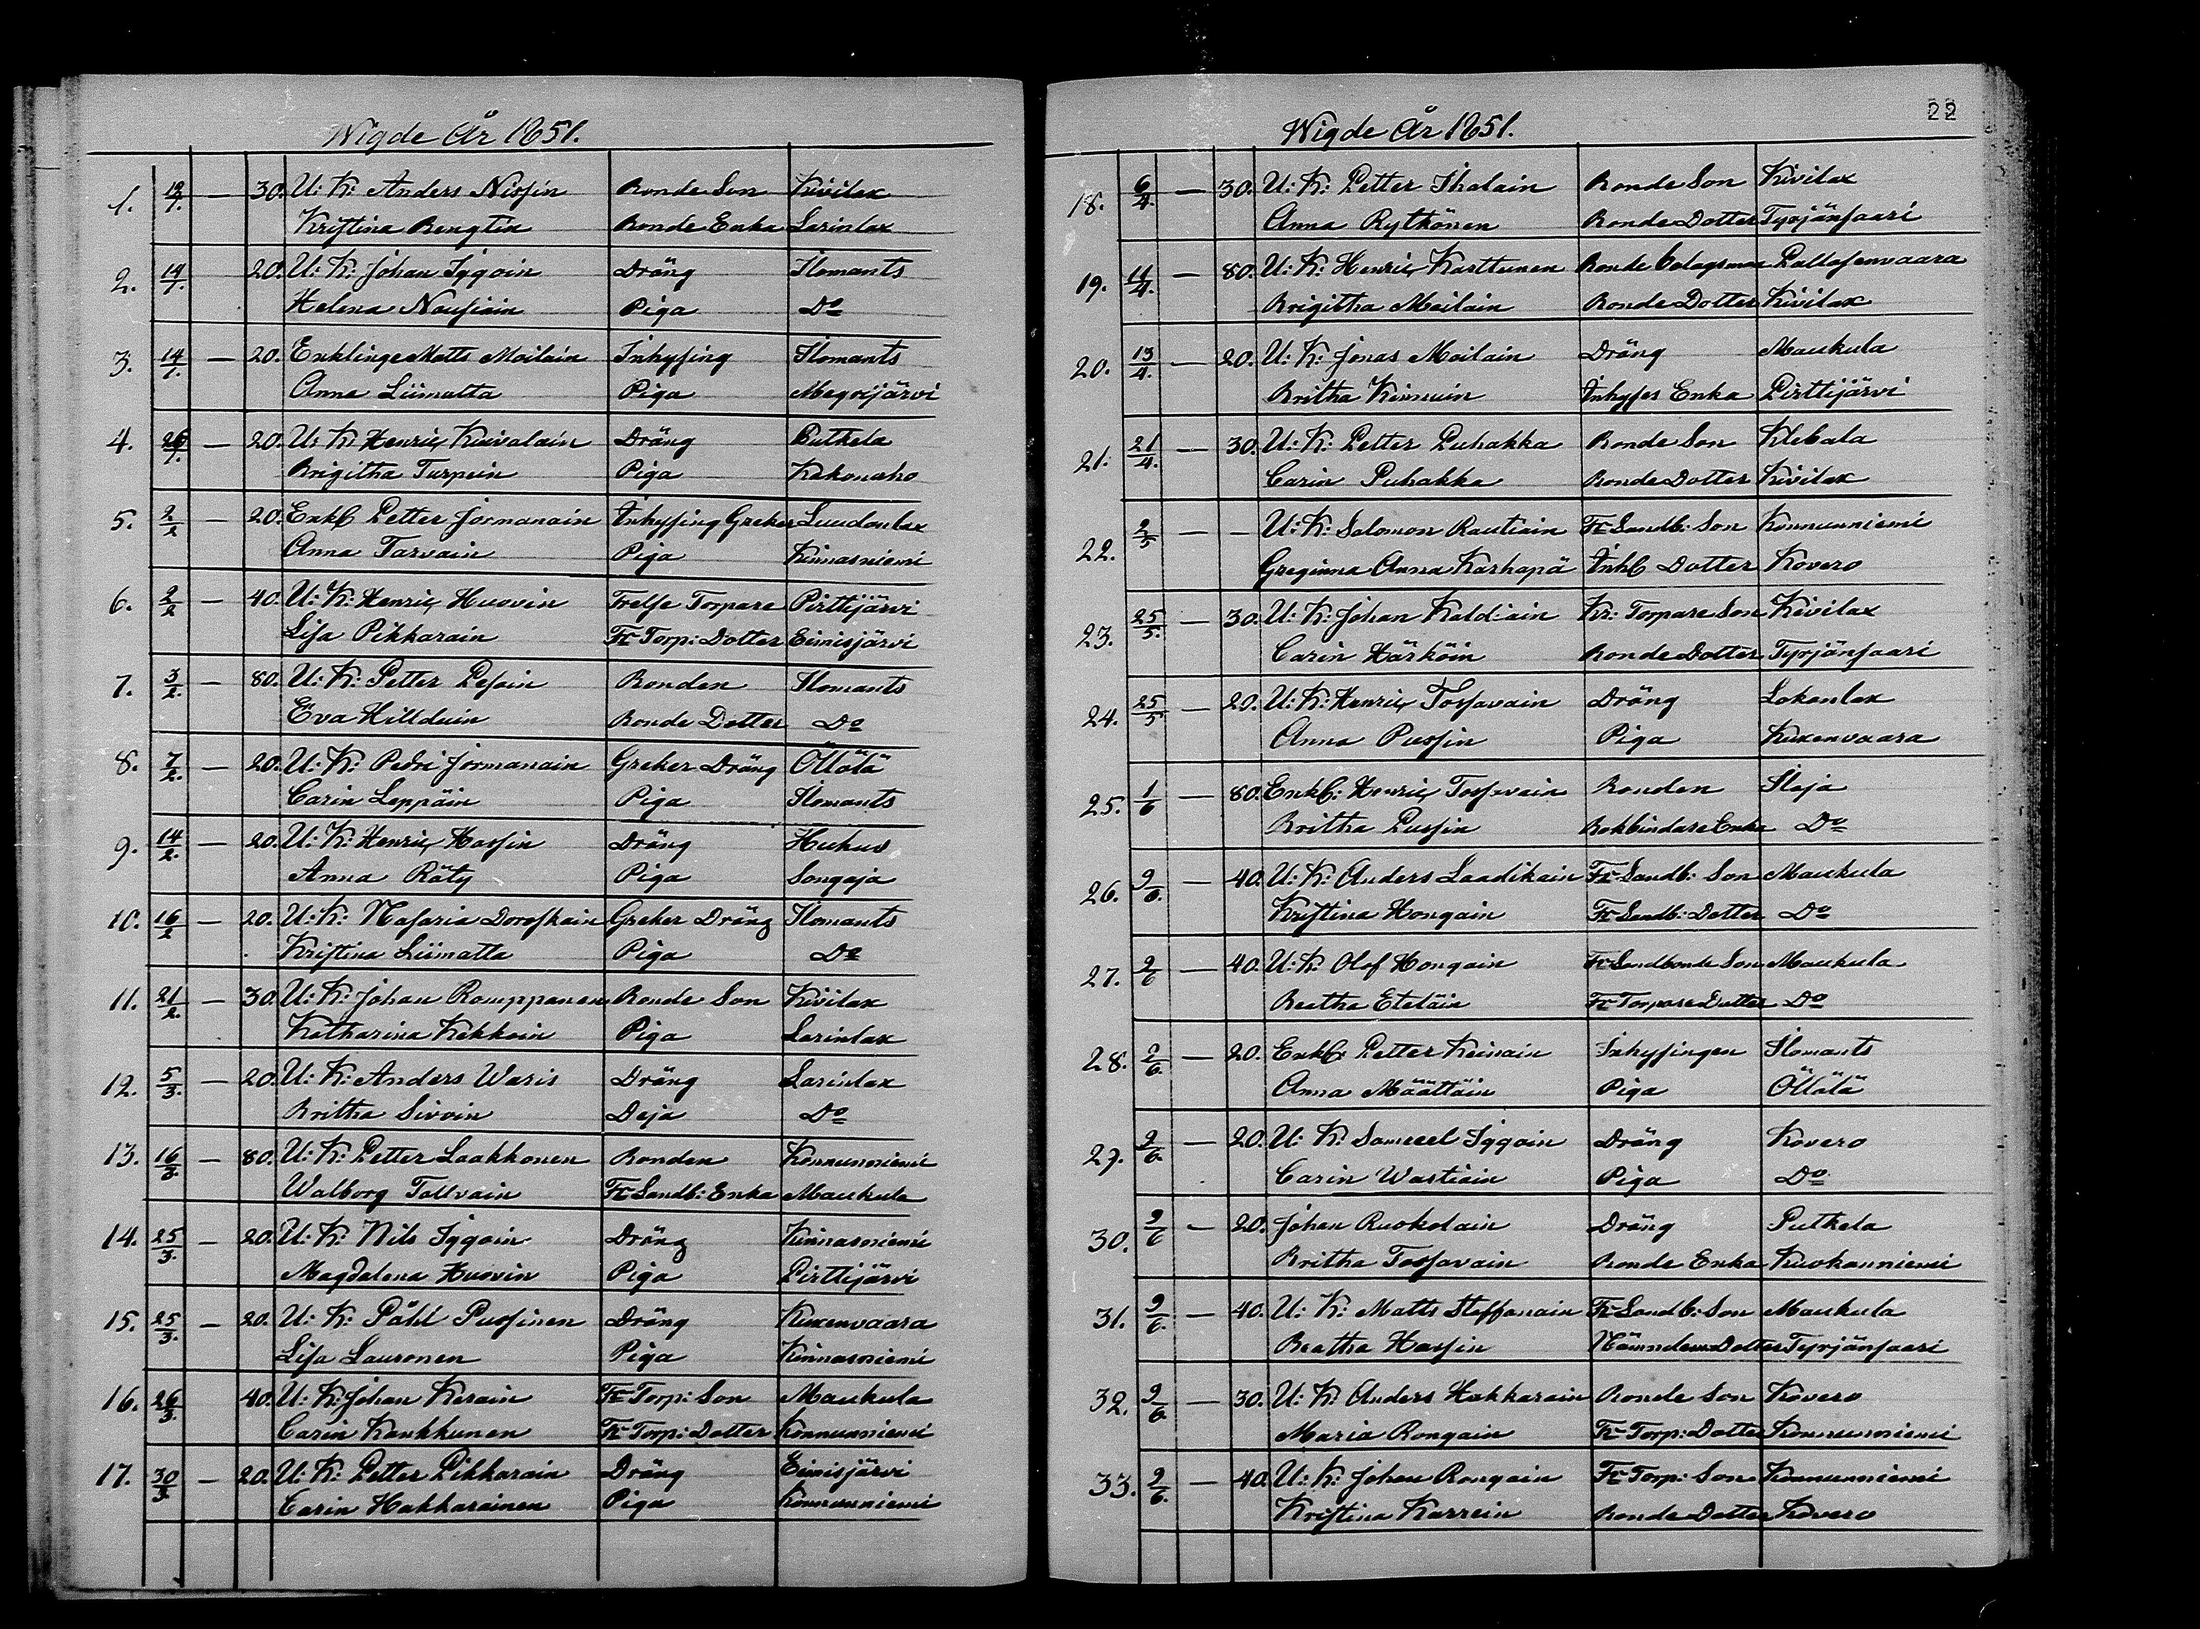 Wigde År 1851.
1. 12/1. — 30. U: K: Anders Nissin Bonde Son Kivilax
Kristina Bengtin Bonde Enka Sarinlax
2. 14/1. 20. U: K: Johan Iggoin Dräng Ilomants
Helena Nousiain Piga Do
3. 14/1. — 20. Enklinge Matts Moilain Inhysing Ilomants
Anna Liimatta Piga Megrijärvi
4. 26/1. — 20. U: K: Henric Kuivalain Dräng Putkela
Brigitha Turpein Piga Kakonaho
5. 2/2 — 20. Enkl: Petter Jormanain Inhysing Greker Luudonlax
Anna Tarvain Piga Kinnasniemi
6. 2/2 — 40. U: K: Henric Huovin Frelse Torpare Pirttijärvi
Lisa Pikkarain Fr Torp: Dotter Eimisjärvi
7. 3/2. — 80. U: K: Petter Pesoin Bonden Ilomants
Eva Hilduin Bonde Dotter Do
8. 7/2. — 20. U: K: Pedri Jormanain Greker Dräng Öllölä
Carin Leppäin Piga Ilomants
9. 14/2. — 20. U: K: Henric Hassin Dräng Huhus
Anna Räty Piga Songaja
10. 16/2 — 20. U: K: Nasaria Dorofkain Greker Dräng Ilomants
Kristina Liimatta Piga Do
11. 21/2. — 30. U: K: Johan Romppanen Bonde Son Kivilax
Katharina Kekkoin Piga Sarinlax
12. 5/3. — 20. U: K: Anders Waris Dräng Sarinlax
Britha Sivoin Deja Do
13. 16/3. — 80. U: K: Petter Laakkonen Bonden Konnunniemi
Walborg Tallvain Fr Landb: Enka Maukula
14. 25/3. — 20. U: K: Nils Iggoin Dräng Kinnasniemi
Magdalena Huovin Piga Pirttijärvi
15. 25/3. — 20. U: K: Påhl Pussinen Dräng Kuxenvaara
Lisa Lauronen Piga Kinnasniemi
16. 26/3. 40. U: K: Johan Kerain Fr Torp: Son Maukula
Carin Kaukkunen Fr Torp: Dotter Konnunniemi
17. 30/3. — 20. U: K: Petter Pikkarain Dräng Eimisjärvi
Carin Hakkarainen Piga Konnunniemi
22
Wigde År 1851.
18. 6/4. — 30. U: K: Petter Ihalain Bonde Son Kivilax
Anna Rytkönen Bonde Dotter Tyrjänsaari
19. 11/4. — 80. U: K: Henric Karttunen Bonde Bolagsman Pallosenvaara
Brigitha Moilain Bonde Dotter Kivilax
20. 13/4. — 20. U: K: Jonas Moilain Dräng Maukula
Britha Kinnuin Inhyses Enka Pirttijärvi
21. 21/4. — 30. U: K: Petter Puhakka Bonde Son Klebala
Carin Puhakka Bonde Dotter Kivilax
22. 2/5 — — U: K: Salomon Rautiain Fr Landb: Son Konnunniemi
Greginna Anna Karhapä Inh: Dotter Kovero
23. 25/5. — 30. U: K: Johan Kaldiain Kr: Torpare Son Kivilax
Carin Härköin Bonde Dotter Tyrjänsaari
24. 25/5 — 20. U: K: Henric Tossavain Dräng Lokanlax
Anna Pussin Piga Kuxenvaara
25. 1/6 — 80. Enkl: Henric Tossavain Bonden Ilaja
Britha Pussin Bokbindare Enka Do
26. 9/6. — 40. U: K: Anders Laadikain Fr Landb: Son Maukula
Kristina Hongain Fr Landb: Dotter Do
27. 9/6 — 40. U: K: Olof Hongain Fr Landbonde Son Maukula
Beatha Eteläin Fr Torpare Dotter Do
28. 9/6. — 20. Enkl: Petter Keinain Inhysingen Ilomants
Anna Määttäin Piga Öllölä
29. 9/6. — 20. U: K: Samuel Iggoin Dräng Kovero
Carin Wastiain Piga Do
30. 9/6 — 20. Johan Ruokolain Dräng Putkela
Britha Tossavain Bonde Enka Kuokanniemi
31. 9/6. — 40. U: K: Matts Steffanain Fr Landb: Son Maukula
Beatha Hassin Nämndem Dotter Tyrjänsaari
32. 9/6. — 30. U: K: Anders Hakkarain Bonde Son Kovero
Maria Rongain Fr Torp: Dotter Konnunniemi
33. 9/6. — 40. U: K: Johan Rongain Fr Torp: Son Konnunniemi
Kristina Karrein Bonde Dotter Kovero